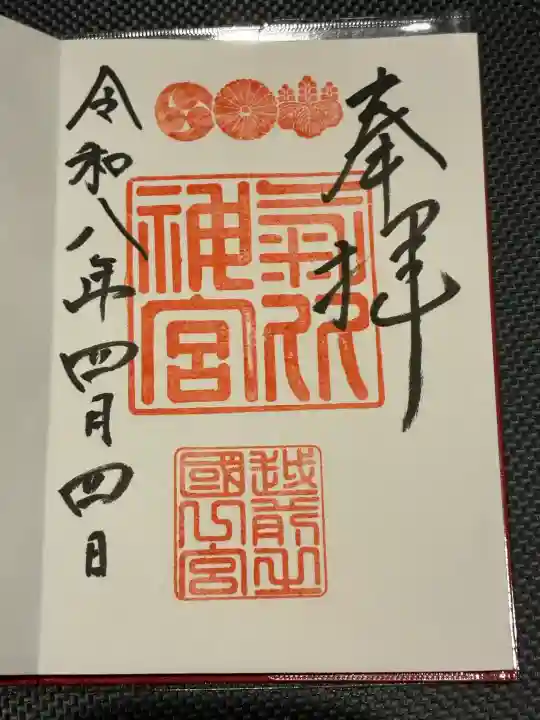 奉拝
氣比
神宮
越前之
國一宮
令和八年四月四日